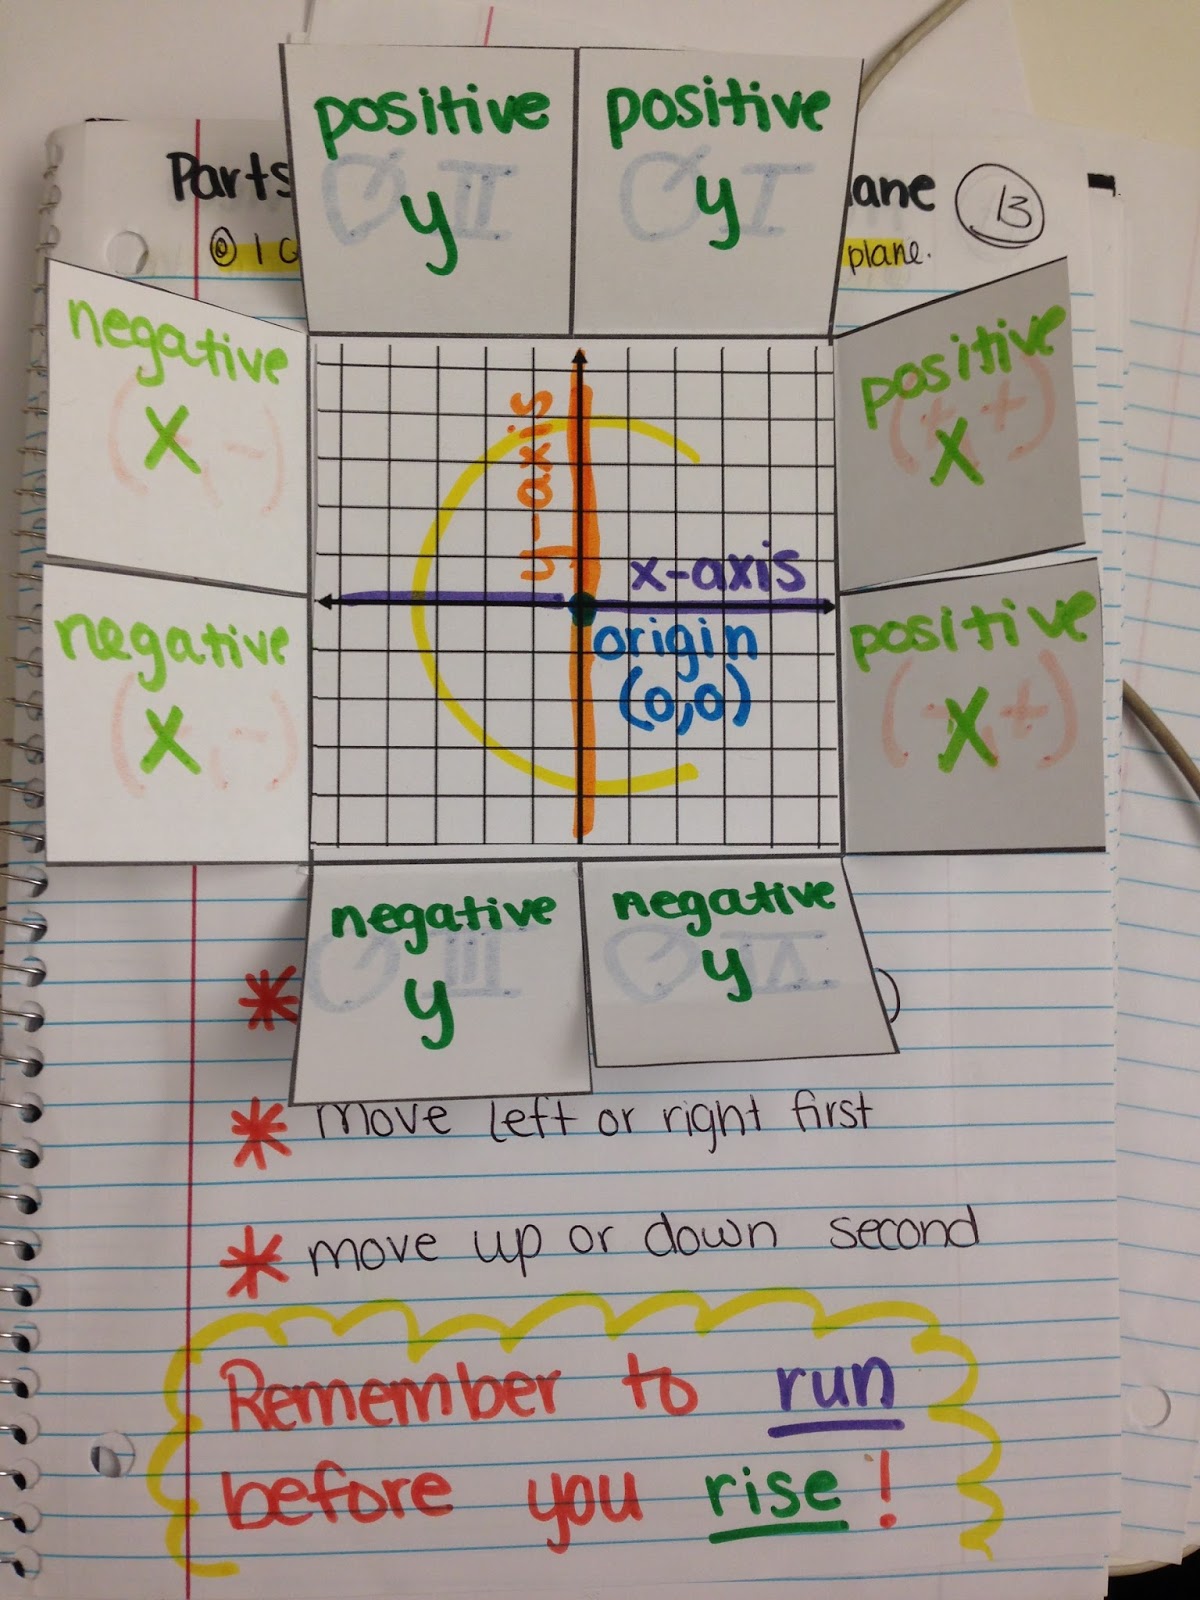 positive
y
positive
y
Parts
ane
13
plane.
negative
x
positive
x
y-axis
x-axis
origin
(0,0)
negative
x
positive
x
negative
y
negative
y
move left or right first
move up or down second
Remember to run
before you rise!